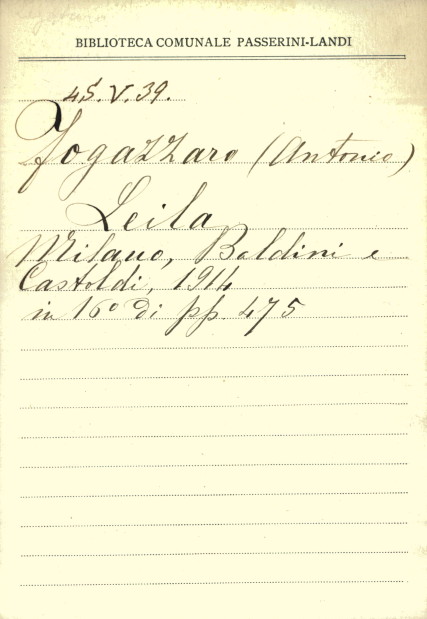 BIBLIOTECA COMUNALE PASSERINI-LANDI
45.V.39.
Fogazzaro (Antonio)
Leila
Milano, Baldini e
Castoldi, 1914
in 16° di pp. 475